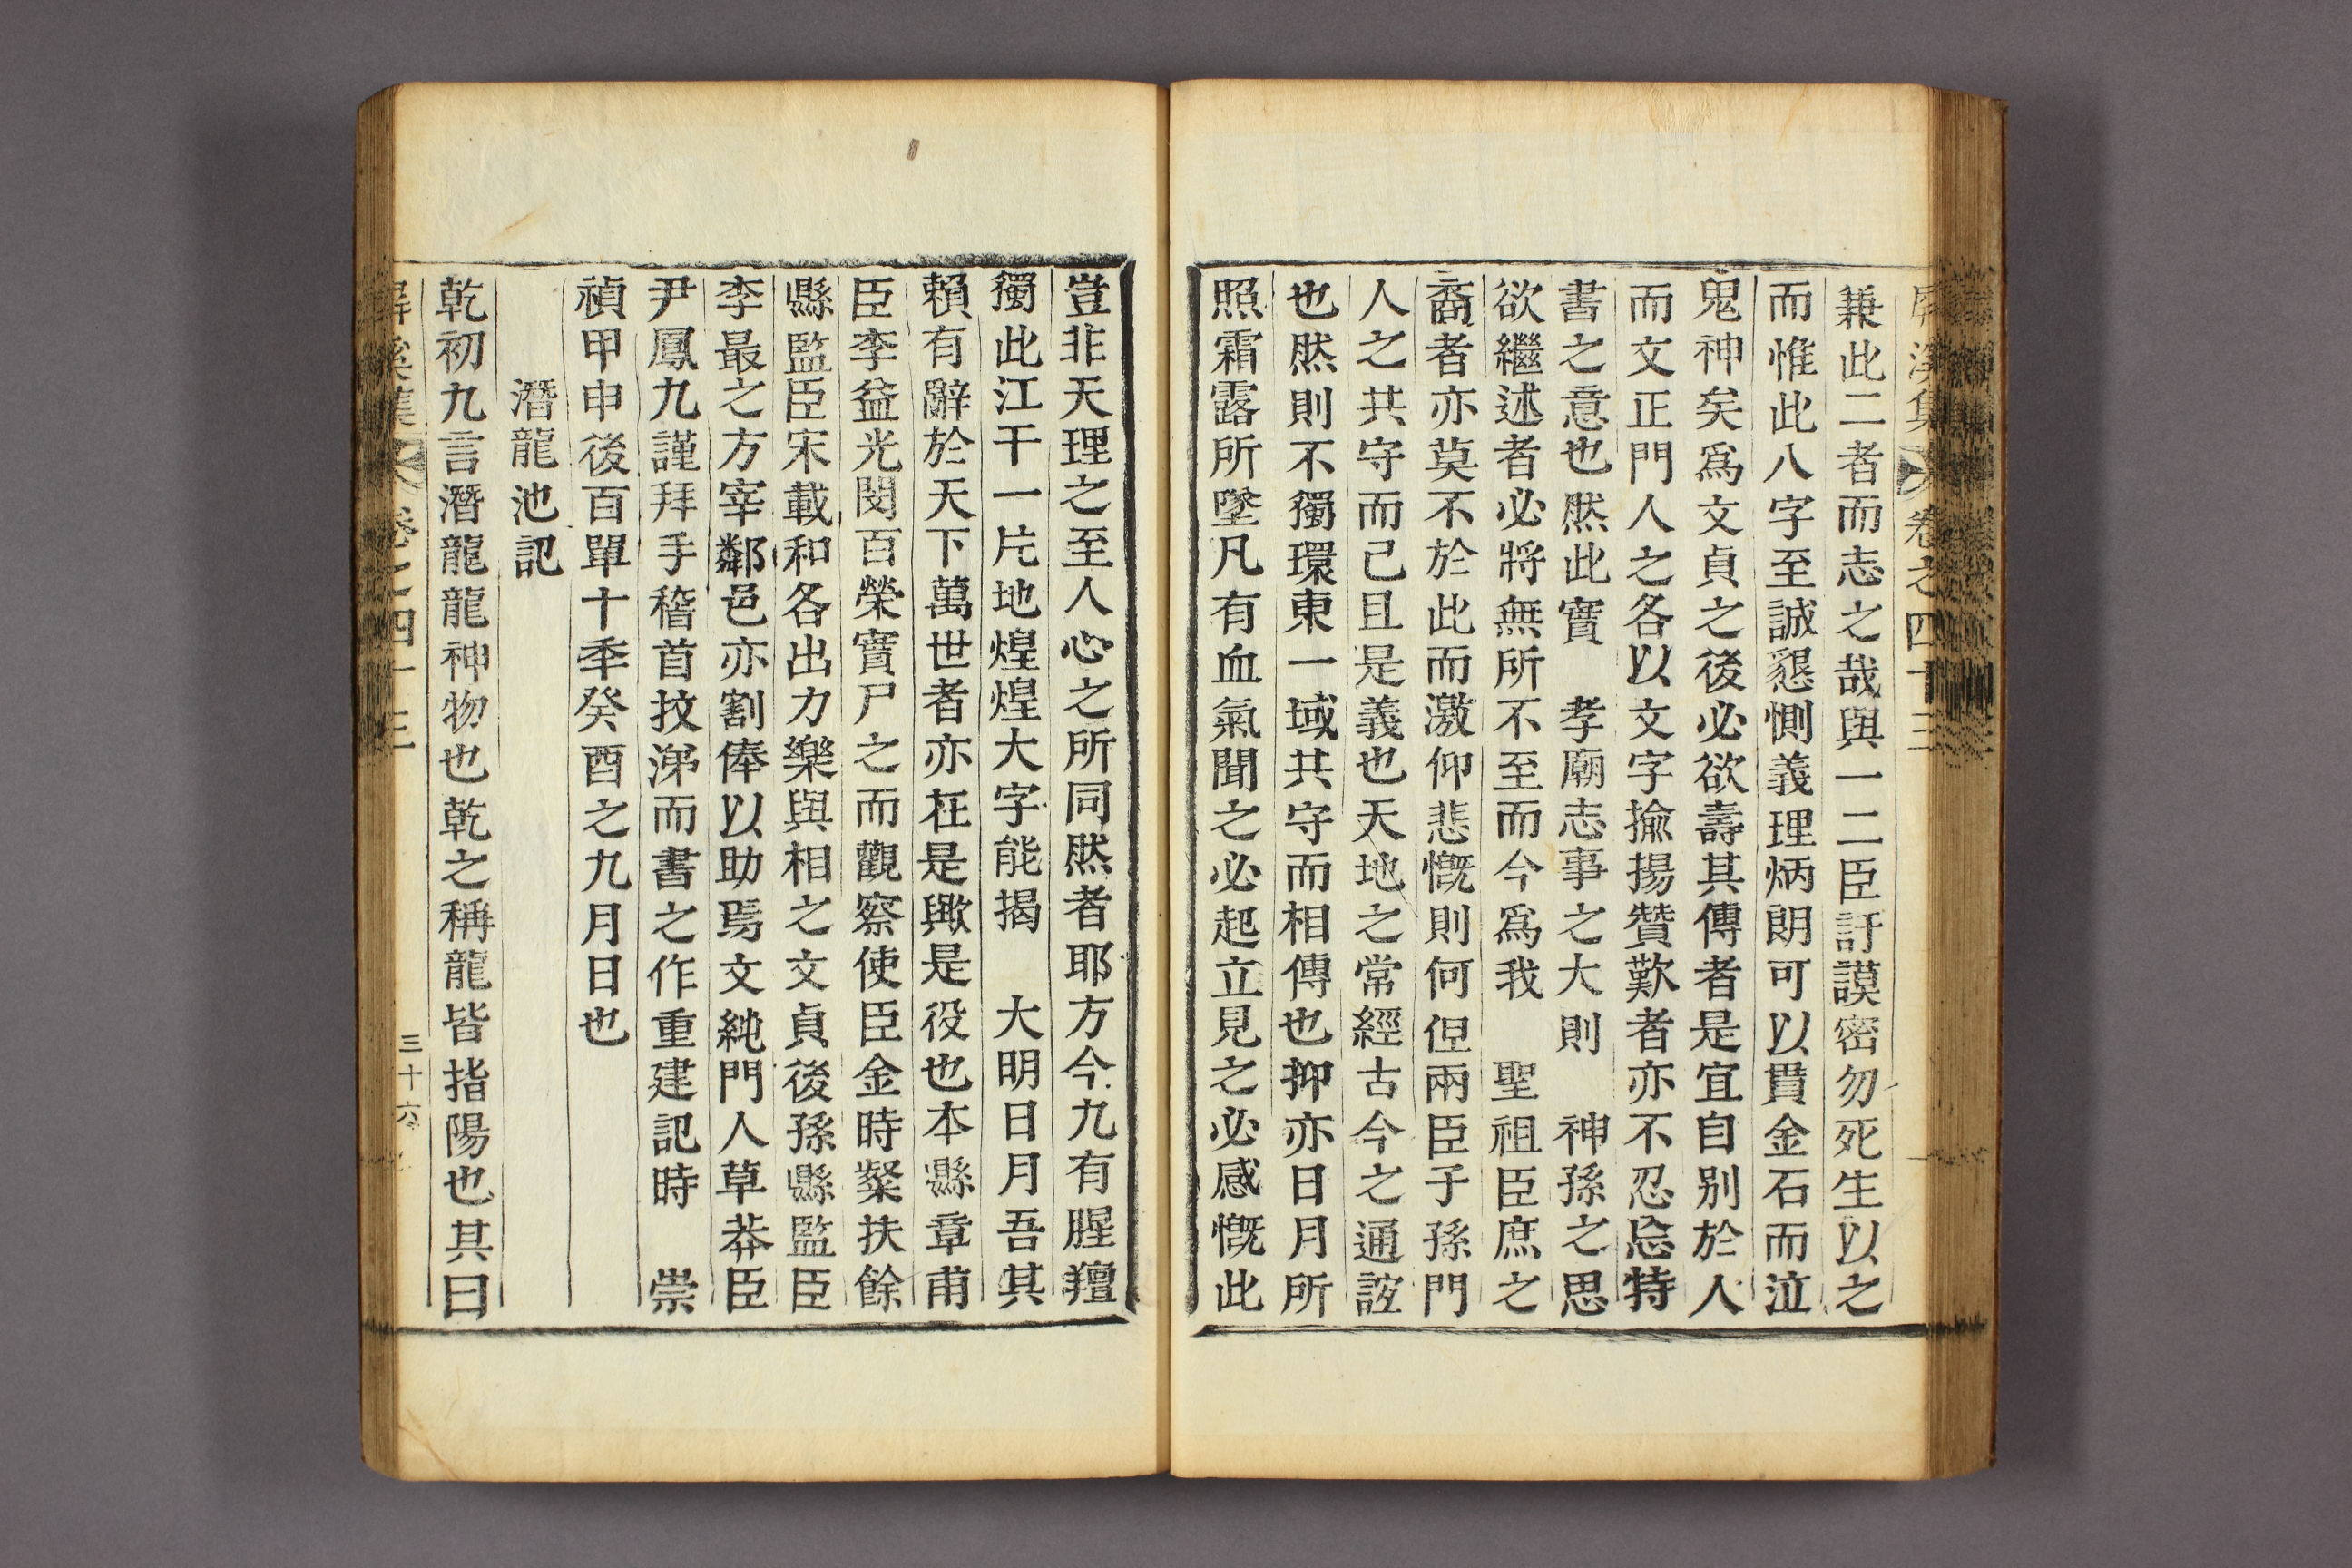 屏溪集 卷之四十三
兼此二者而志之哉與一二臣訏謨密勿死生以之
而惟此八字至誠懇惻義理炳朗可以貫金石而泣
鬼神矣爲文貞之後必欲壽其傳者是宜自別於人
而文正門人之各以文字揄揚贊歎者亦不忍忘特
書之意也然此實 孝廟志事之大則 神孫之思
欲繼述者必將無所不至而今爲我 聖祖臣庶之
裔者亦莫不於此而激仰悲慨則何但兩臣子孫門
人之共守而已且是義也天地之常經古今之通誼
也然則不獨環東一域共守而相傳也抑亦日月所
照霜露所墜凡有血氣聞之必起立見之必感慨此
豈非天理之至人心之所同然者耶方今九有腥羶
獨此江干一片地煌煌大字能揭 大明日月吾其
賴有辭於天下萬世者亦在是歟是役也本縣章甫
臣李益光閔百榮實尸之而觀察使臣金時粲扶餘
縣監臣宋載和各出力樂與相之文貞後孫縣監臣
李最之方宰鄰邑亦割俸以助焉文純門人草莽臣
尹鳳九謹拜手稽首抆涕而書之作重建記時 崇
禎甲申後百單十年癸酉之九月日也
潛龍池記
乾初九言潛龍龍神物也乾之稱龍皆指陽也其曰
屏溪集 卷之四十三 三十六